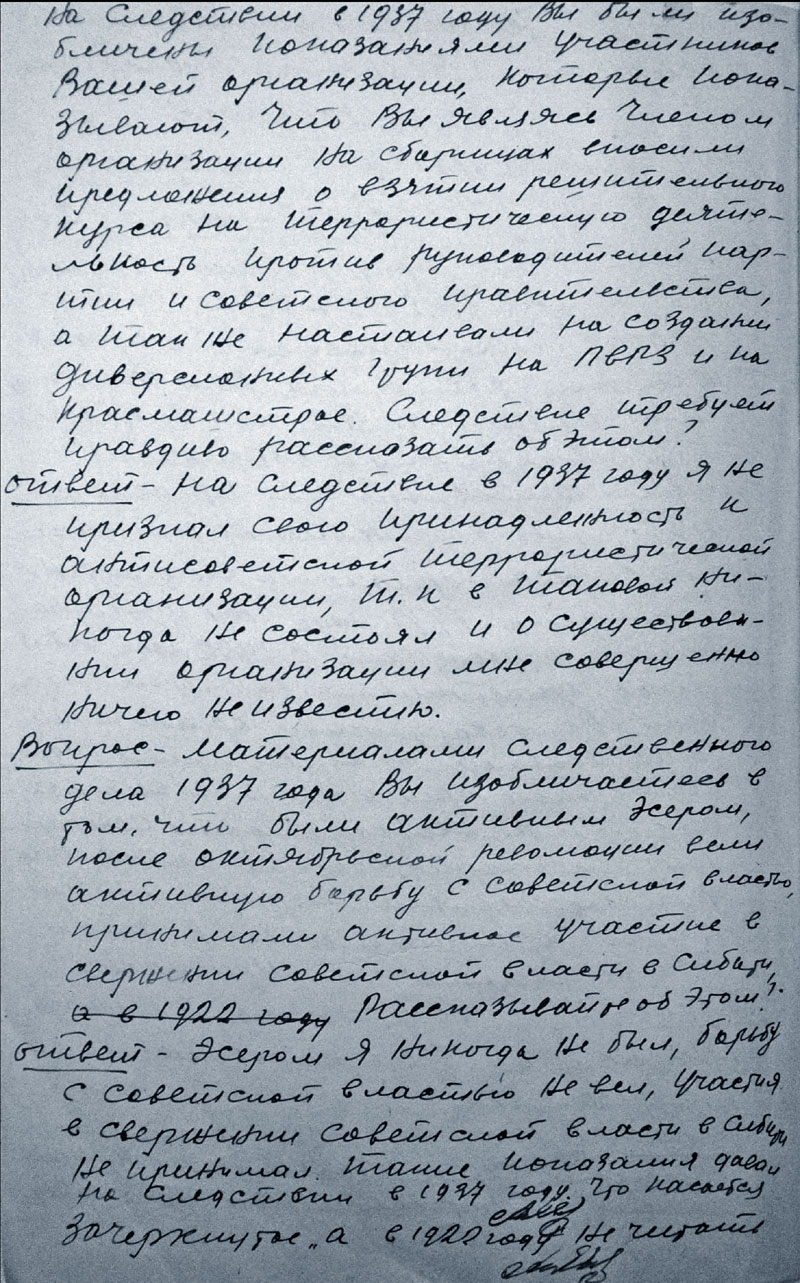 На Следствии в 1937 году Вы были изо-
бличены показаниями участников
Вашей организации, которые пока-
зывают, что Вы являясь членом
организации на сборищах вносили
предложения о взятии решительного
курса на террористическую деяте-
льность против руководителей пар-
тии и советского правительства,
а так же настаивали на создании
диверсионных групп на ПВРЗ и на
Красмашстрое. Следствие требует
правдиво рассказать об этом?
ответ - На следствие в 1937 году я не
признал свою принадлежность к
антисоветской террористической
организации, т.к в таковой ни-
когда не состоял и о существова-
нии организации мне совершенно
ничего не известно.
Вопрос - Материалами следственного
дела 1937 года Вы изобличаетесь в
том, что были активным эсером,
после октябрьской революции вели
активную борьбу с советской властью,
принимали активное участие в
свержении советской власти в Сибири,
а в 1922 году Рассказывайте об этом?
ответ - Эсером я никогда не был, борьбу
с советской властью не вел, участия
в свержении советской власти в Сибири
не принимал. Такие показания давал
на следствии в 1937 году. Что касается
Зачеркнутое „а в 1922 году не читать